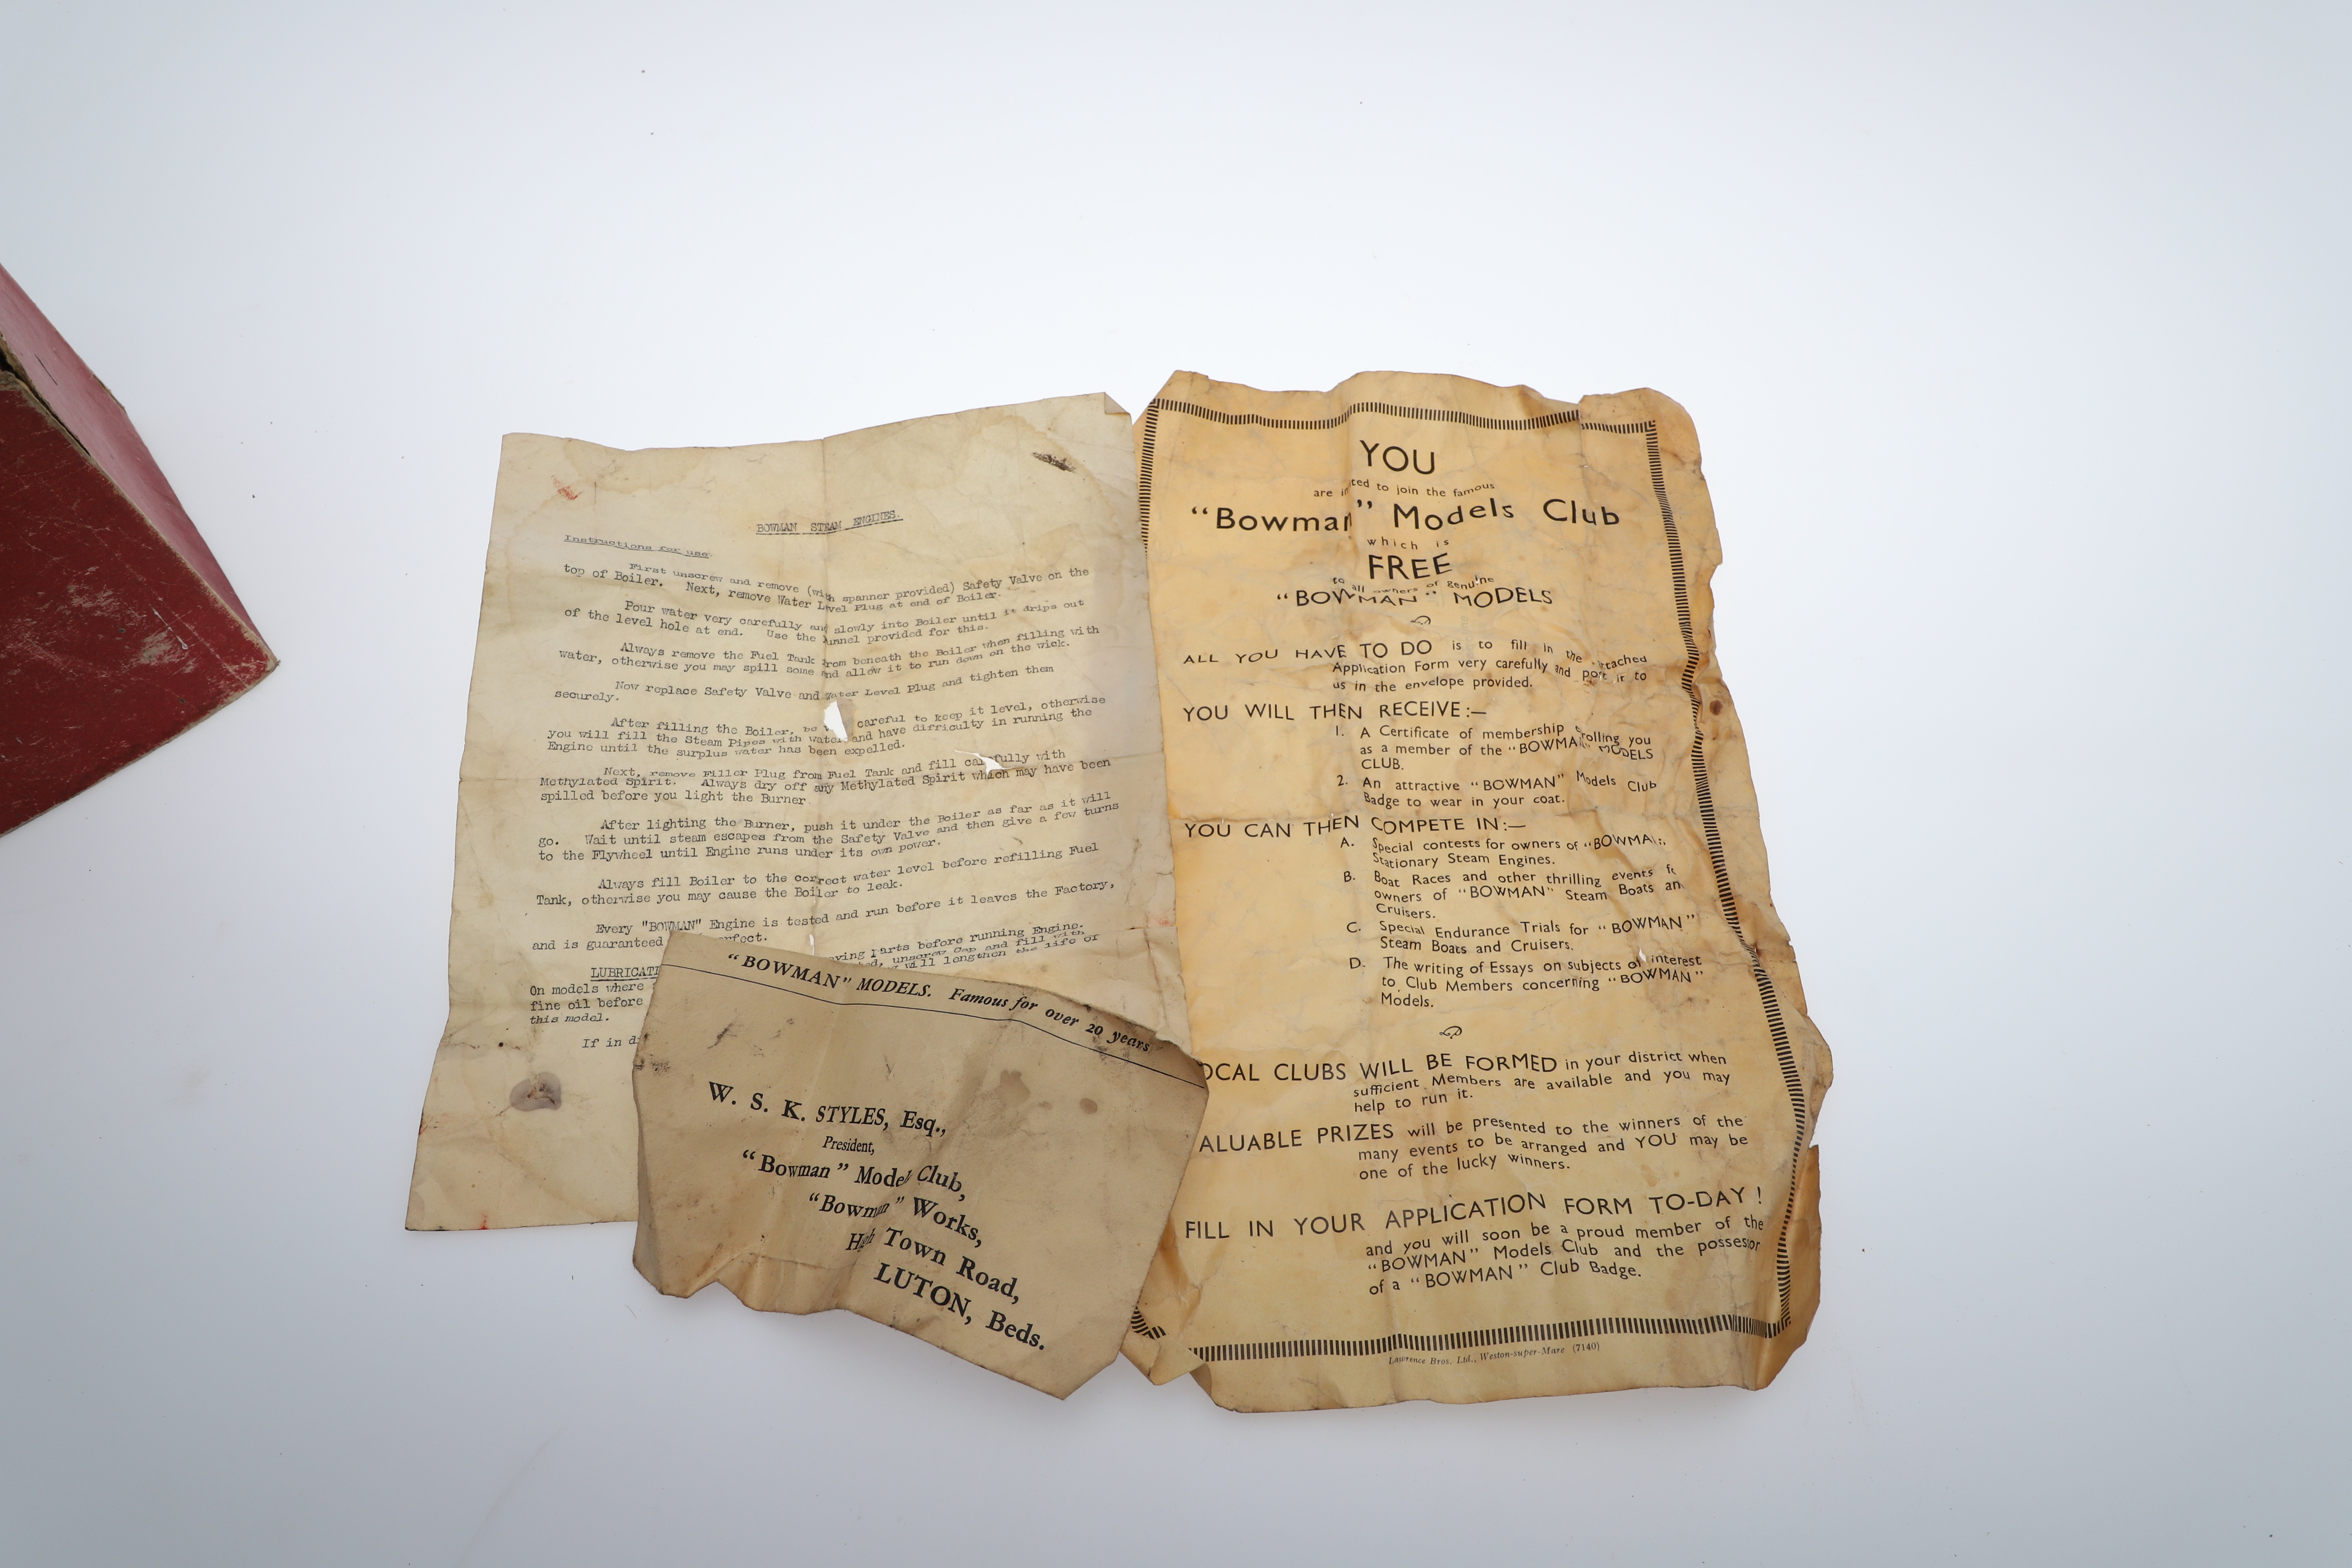 BOWMAN STEAM ENGINES.
Instructions for use.
First unscrew and remove (with spanner provided) Safety Valve on the
top of Boiler. Next, remove Water Level Plug at end of Boiler.
Pour water very carefully and slowly into Boiler until it drips out
of the level hole at end. Use the funnel provided for this.
Always remove the Fuel Tank from beneath the Boiler when filling with
water, otherwise you may spill some and allow it to run down on the wick.
Now replace Safety Valve and Water Level Plug and tighten them
securely.
After filling the Boiler, be careful to keep it level, otherwise
you will fill the Steam Pipes with water and have difficulty in running the
Engine until the surplus water has been expelled.
Next, remove Filler Plug from Fuel Tank and fill carefully with
Methylated Spirit. Always dry off any Methylated Spirit which may have been
spilled before you light the Burner
After lighting the Burner, push it under the Boiler as far as it will
go. Wait until steam escapes from the Safety Valve and then give a few turns
to the Flywheel until Engine runs under its own power.
Always fill Boiler to the correct water level before refilling Fuel
Tank, otherwise you may cause the Boiler to leak.
Every "BOWMAN" Engine is tested and run before it leaves the Factory,
and is guaranteed perfect.
LUBRICATI
parts before running Engine.
On models where unscrew Cap and fill with
fine oil before will lengthen the life of
this model.
If in d
"BOWMAN" MODELS. Famous for over 20 years
W. S. K. STYLES, Esq.,
President,
"Bowman" Model Club,
"Bowman" Works,
High Town Road,
LUTON, Beds.
YOU
are invited to join the famous
"Bowman" Models Club
which is
FREE
to all owners of genuine
"BOWMAN" MODELS
ALL YOU HAVE TO DO is to fill in the attached
Application Form very carefully and post it to
us in the envelope provided.
YOU WILL THEN RECEIVE:—
1. A Certificate of membership enrolling you
as a member of the "BOWMAN" MODELS
CLUB.
2. An attractive "BOWMAN" Models Club
Badge to wear in your coat.
YOU CAN THEN COMPETE IN:—
A. Special contests for owners of "BOWMAN"
Stationary Steam Engines.
B. Boat Races and other thrilling events fo
owners of "BOWMAN" Steam Boats an
Cruisers.
C. Special Endurance Trials for "BOWMAN"
Steam Boats and Cruisers.
D. The writing of Essays on subjects of interest
to Club Members concerning "BOWMAN"
Models.
OCAL CLUBS WILL BE FORMED in your district when
sufficient Members are available and you may
help to run it.
ALUABLE PRIZES will be presented to the winners of the
many events to be arranged and YOU may be
one of the lucky winners.
FILL IN YOUR APPLICATION FORM TO-DAY !
and you will soon be a proud member of the
"BOWMAN" Models Club and the possessor
of a "BOWMAN" Club Badge.
Lawrence Bros. Ltd., Weston-super-Mare (7140)